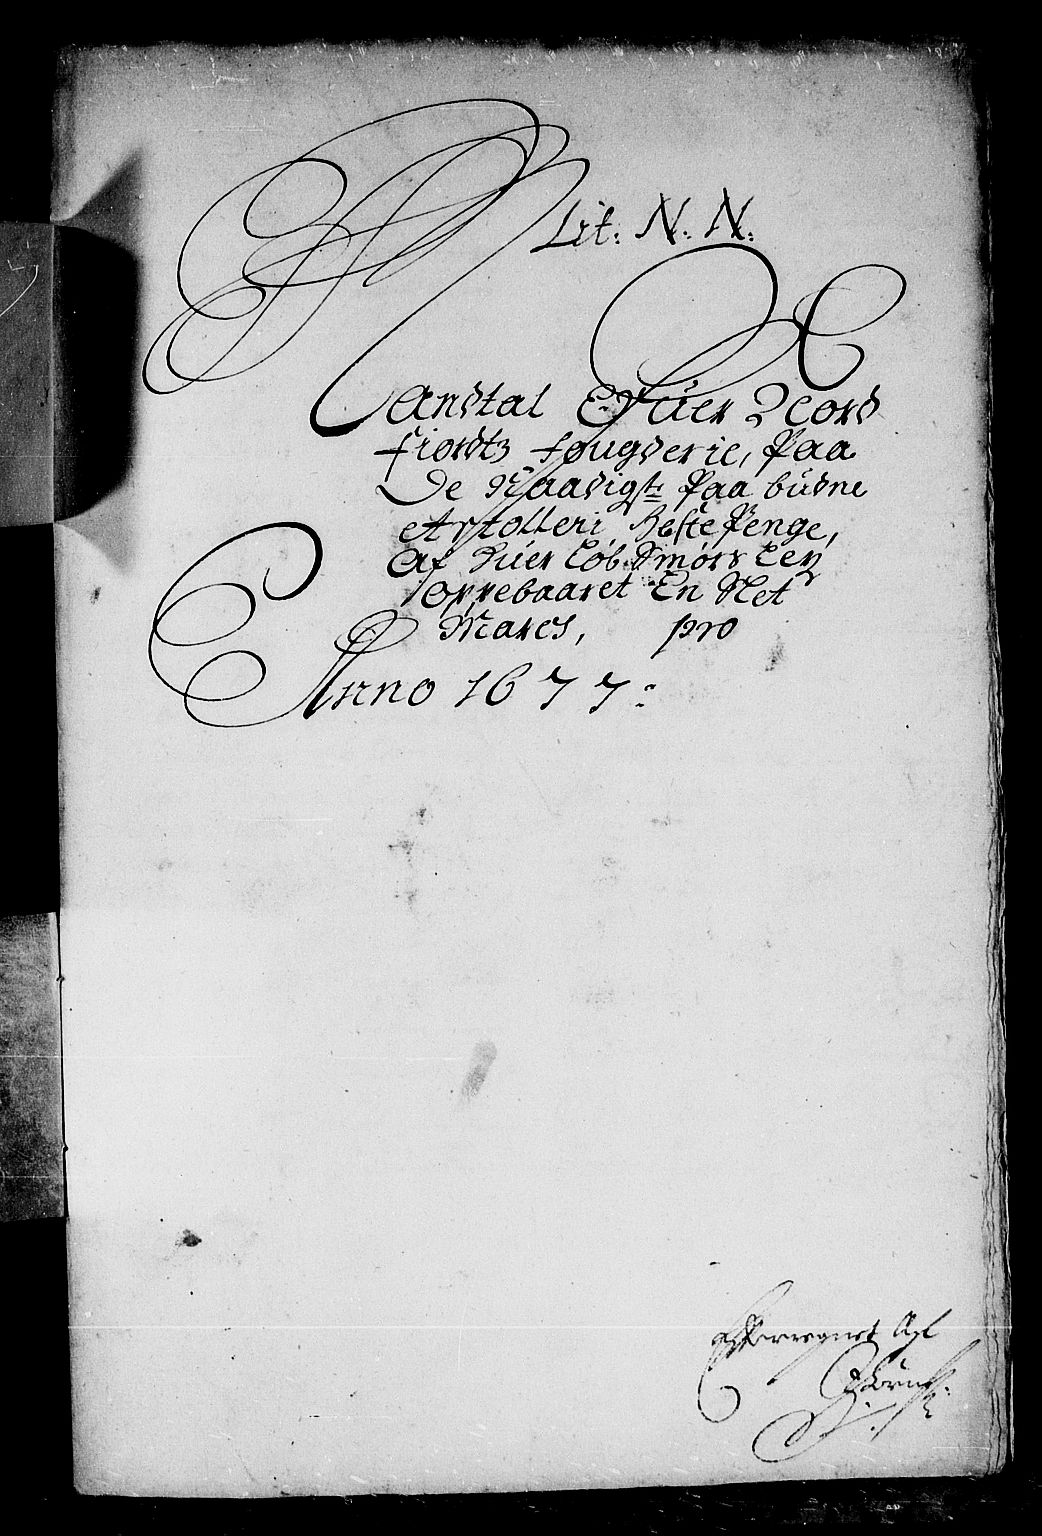 Lit: N: N:
Mandtal Ofuer Nord
fiordtz fougderie, Paa
De Naadigste Paa budne
Artolleri Heste Penge,
Af Huer Løb Smørs Ley
Oppebaaret En Ret
Marck, pro
Anno 1677:
Efterregnet